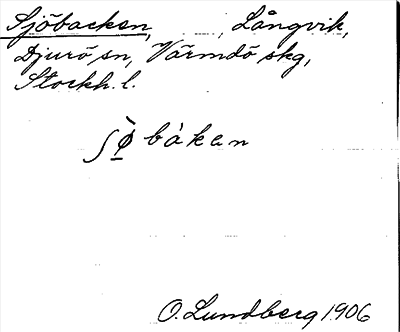 Sjöbacken, Långvik,
Djurö sn, Värmdö skg,
Stockh. l.
ʃø̠̀ bàkan
O. Lundberg 1906